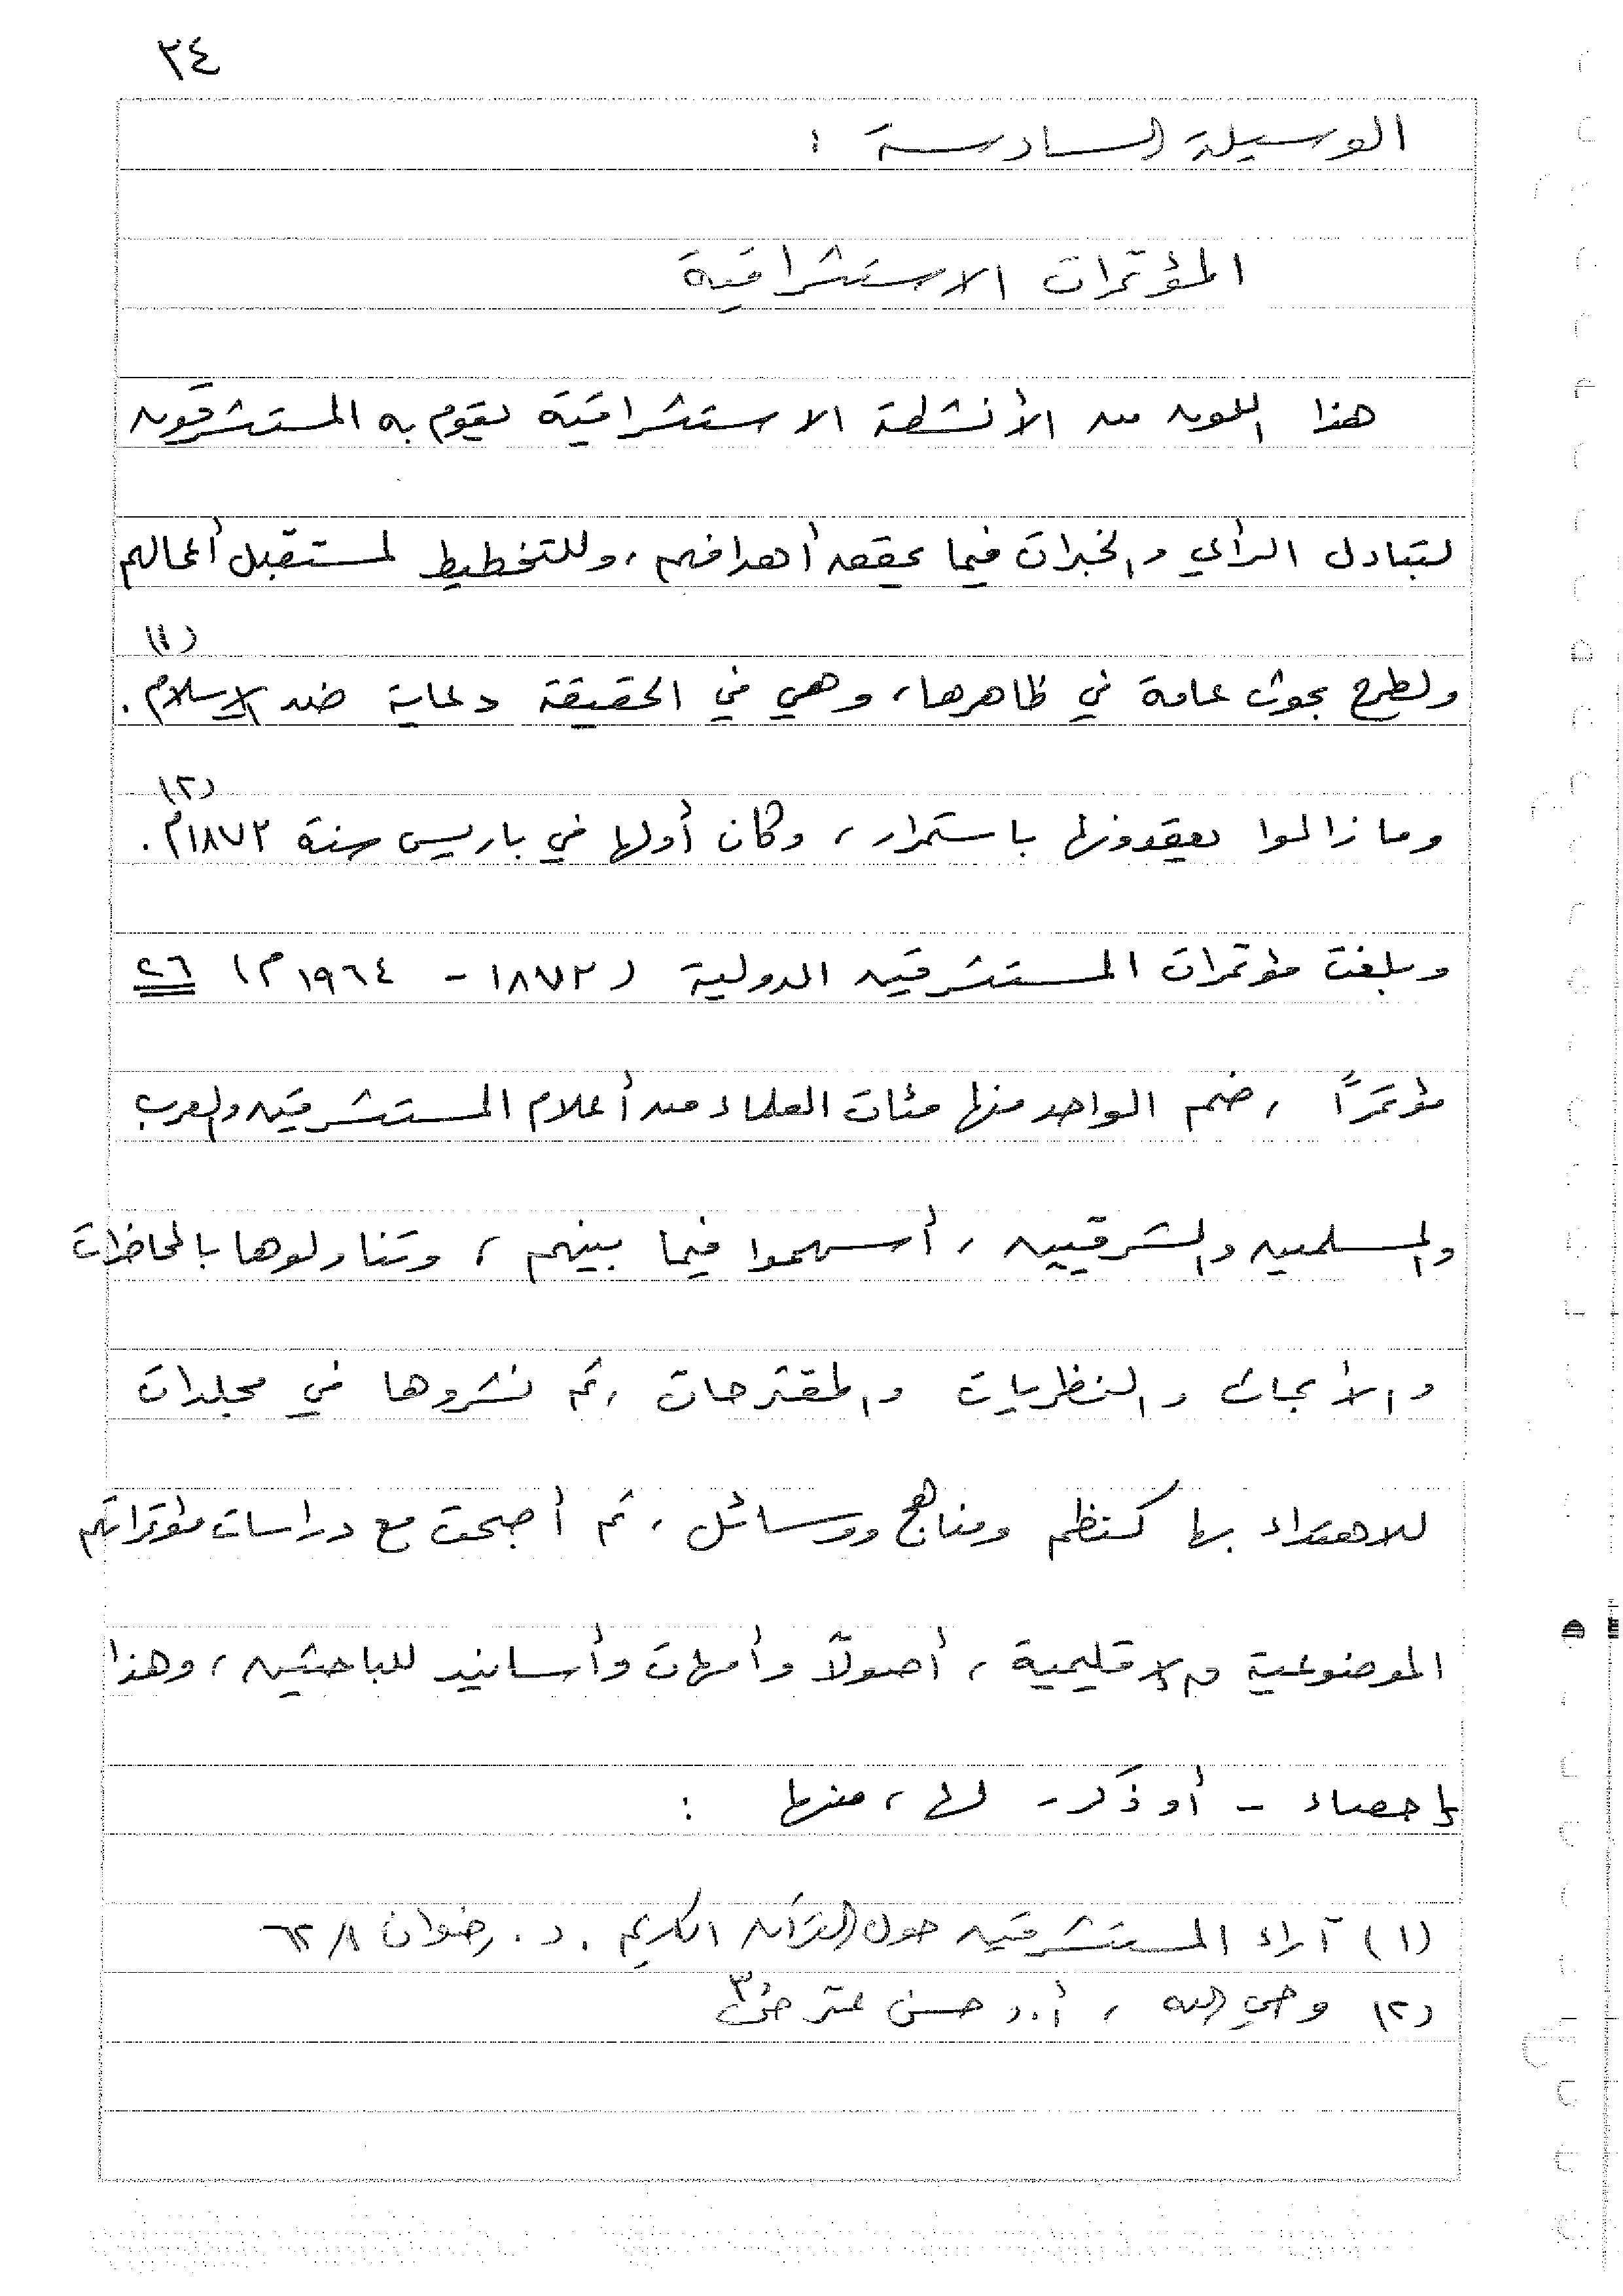 ٢٤
الوسيلة السادسة :
المؤتمرات الاستشراقية
هذا اللون من الأنشطة الاستشراقية يقوم به المستشرقون
لتبادل الرأي والخبرات فيما يحقق أهدافهم ، وللتخطيط لمستقبل أعمالهم
ولطرح بحوث عامة في ظاهرها ، وهي في الحقيقة دعاية ضد الإسلام (١) .
وما زالوا يعقدونها باستمرار ، وكان أولها في باريس سنة ١٨٧٢م (٢) .
وبلغت مؤتمرات المستشرقين الدولية (١٨٧٢ - ١٩٦٤م) ٢٦
مؤتمرًا ، ضم الواحد منها مئات العلماء من أعلام المستشرقين والعرب
والمسلمين والشرقيين ، أسهموا فيما بينهم ، وتناولوها بالمحاضرات
والأبحاث والنظريات والمقترحات ، ثم نشروها في مجلدات
للاهتداء بها كنظم ومناهج ووسائل ، ثم أصبحت مع دراسات مؤتمراتهم
الموضوعية والإقليمية ، أصولًا وأمهات وأسانيد للباحثين ، وهذا
إحصاء - أو ذكر - لها ، منها :
(١) آراء المستشرقين حول القرآن الكريم . د . رضوان ٦٢/١
(٢) وحي الله ، أ.د حسن عتر